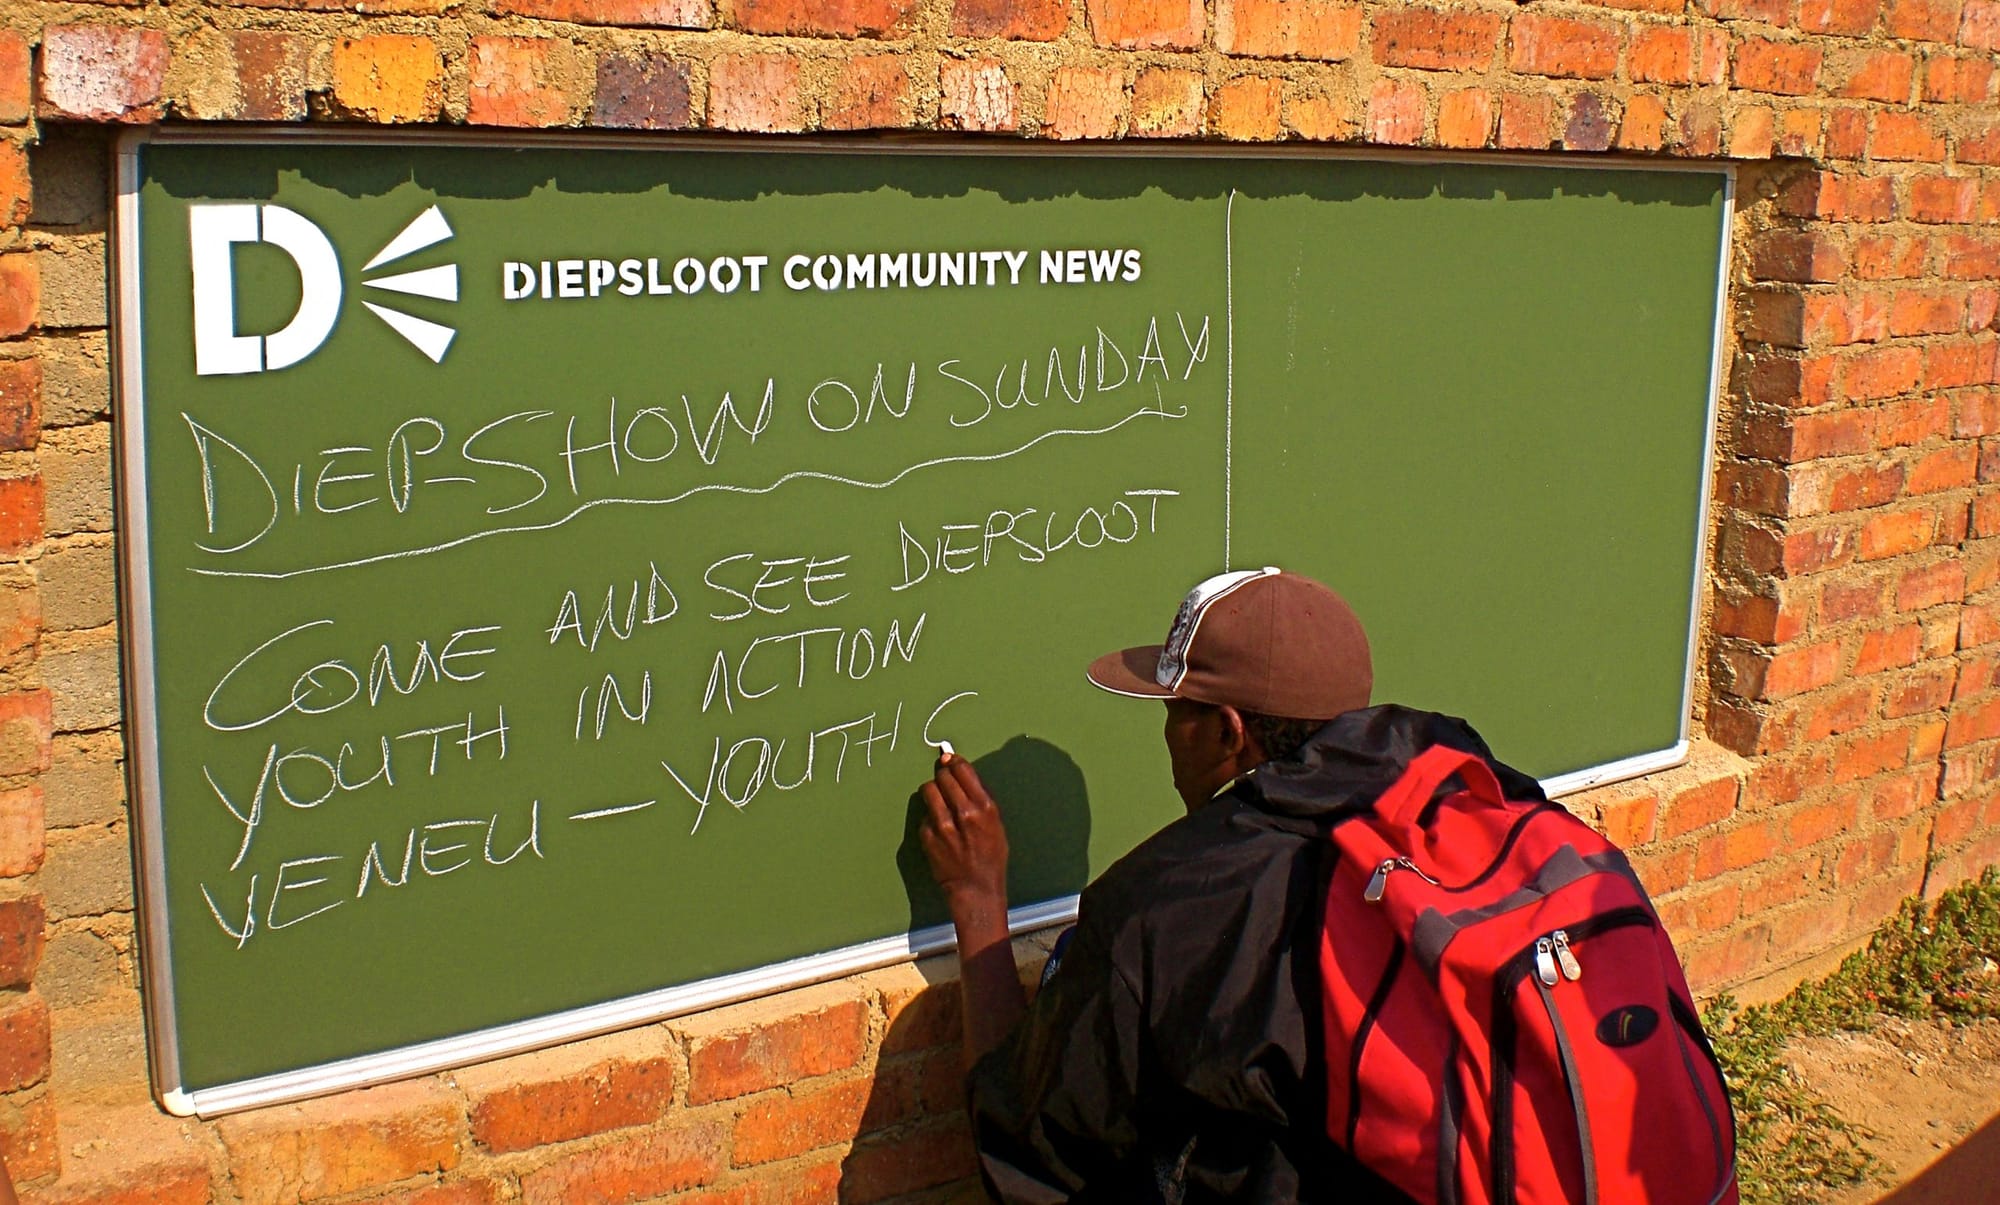 DIEPSLOOT COMMUNITY NEWS
DIEP-SHOW ON SUNDAY
COME AND SEE DIEPSLOOT
YOUTH IN ACTION
VENEU — YOUTH C